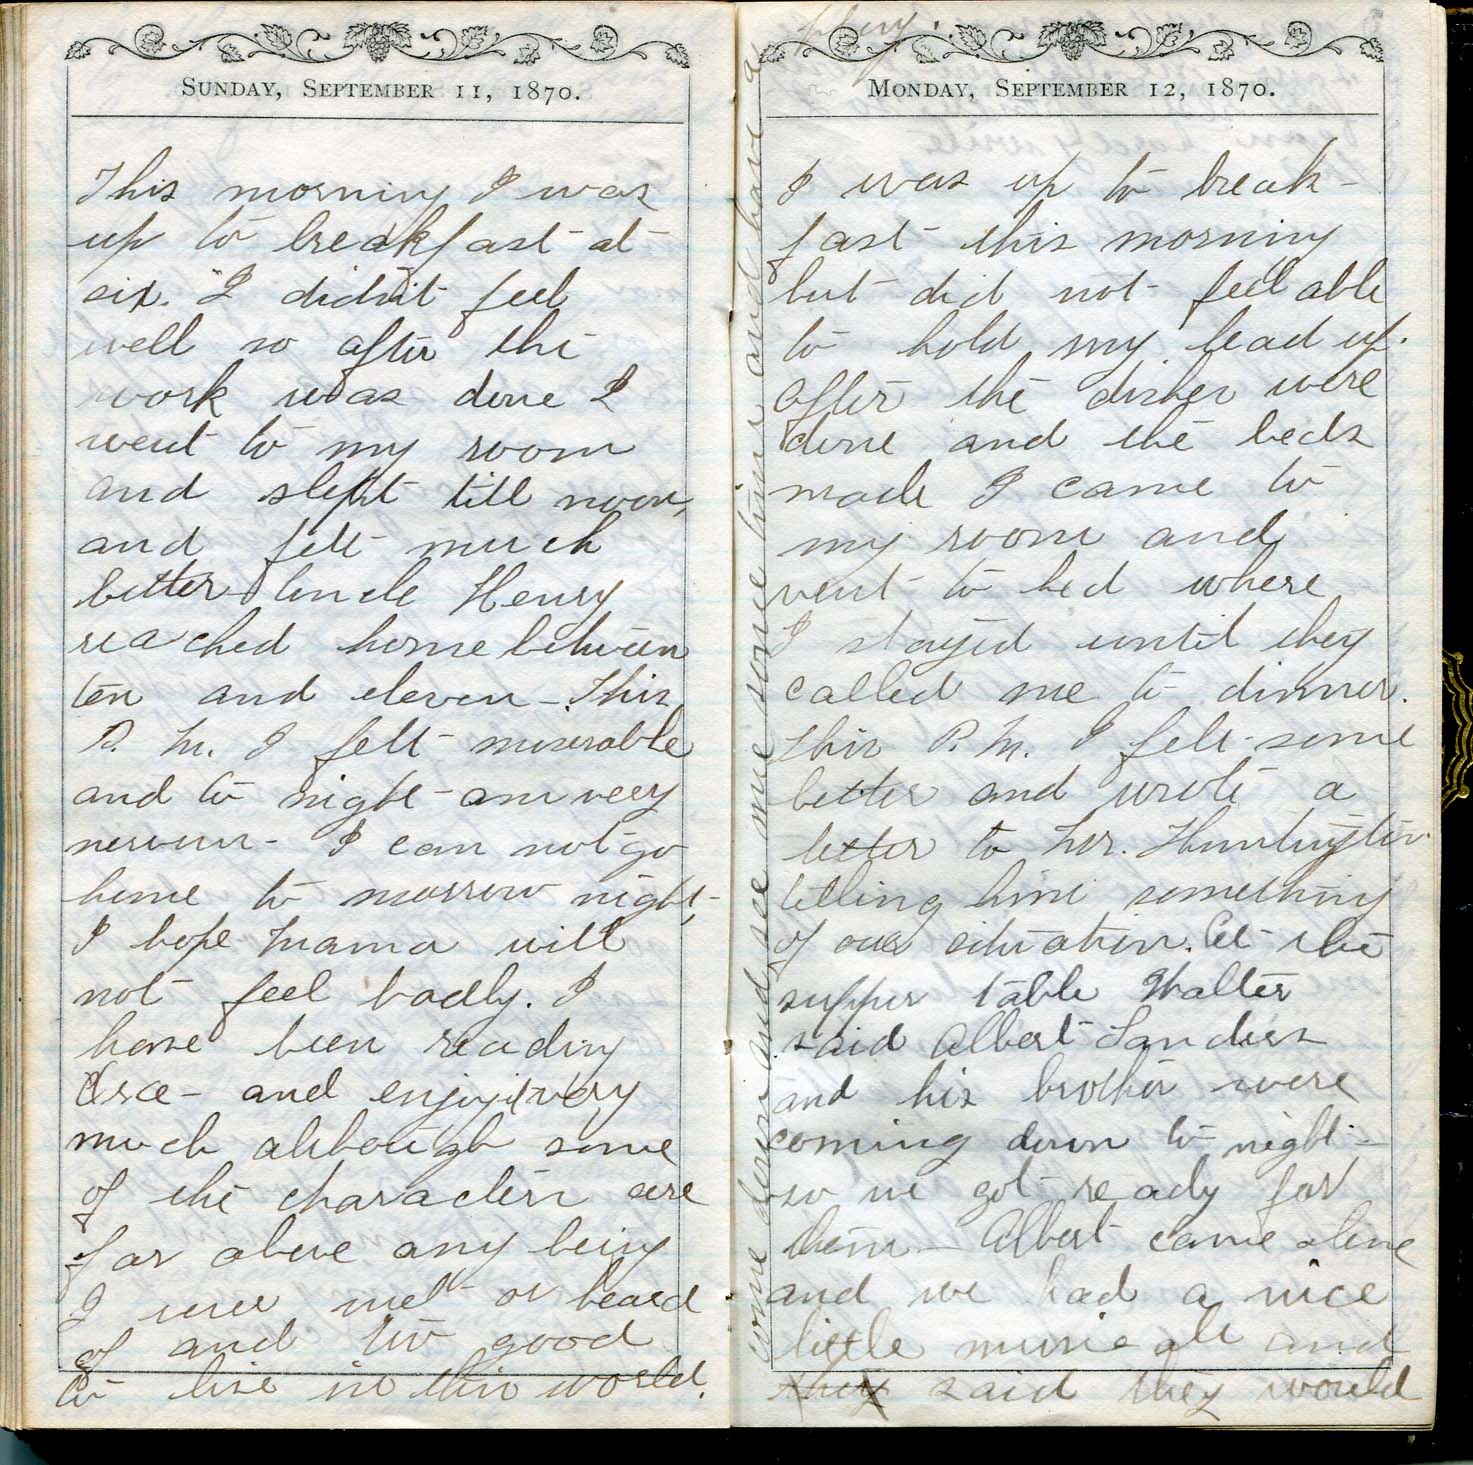 SUNDAY, SEPTEMBER 11, 1870.
This morning I was
up to breakfast at
six. I didn't feel
well so after the
work was done I
went to my room
and slept till noon,
and felt much
better Uncle Henry
reached home between
ten and eleven - This
P. M. I felt miserable
and to night am very
nervous - I can not go
home to morrow night,
I hope Mama will
not feel badly. I
have been reading
and enjoy very
much although some
of the characters are
far above any being
I ever met or heard
of and too good
to live in this world.
MONDAY, SEPTEMBER 12, 1870.
I was up to break-
fast this morning
but did not feel able
to hold my head up.
After the dishes were
done and the beds
made I came to
my room and
went to bed where
I stayed until they
called me to dinner.
This P. M. I felt some
better and wrote a
letter to Mr. Huntington
telling him something
of our situation. At the
supper table Walter
said Albert Sanders
and his brother were
coming down to night -
so we got ready for
them - Albert came alone
and we had a nice
little musicale and
they said they would
come down and see me some time and have a